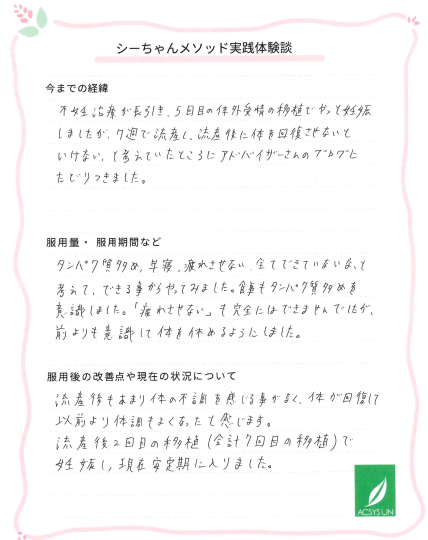 シーちゃんメソッド実践体験談
今までの経緯
不妊治療が長引き、5回目の体外受精の移植でやっと妊娠
しましたが、7週で流産し、流産後に体を回復させないと
いけない、と考えていたところにアドバイザーさんのブログに
たどりつきました。
服用量・ 服用期間など
タンパク質多め、早寝、疲れさせない、全てできていないな、と
考えて、できる事からやってみました。食事もタンパク質多めを
意識しました。「疲れさせない」も完全にはできませんでしたが、
前よりも意識して体を休めるようにしました。
服用後の改善点や現在の状況について
流産後もあまり体の不調を感じる事がなく、体が回復して
以前より体調もよくなったと感じます。
流産後2回目の移植(合計7回目の移植)で
妊娠し、現在安定期に入りました。
ACSYSUN